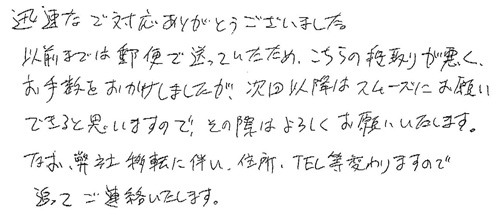 迅速なご対応ありがとうございました。
以前までは郵便で送っていたため、こちらの段取りが悪く、
お手数をおかけしましたが、次回以降はスムーズにお願い
できると思いますので、その際はよろしくお願いいたします。
なお、弊社移転に伴い、住所、TEL等変わりますので
追ってご連絡いたします。